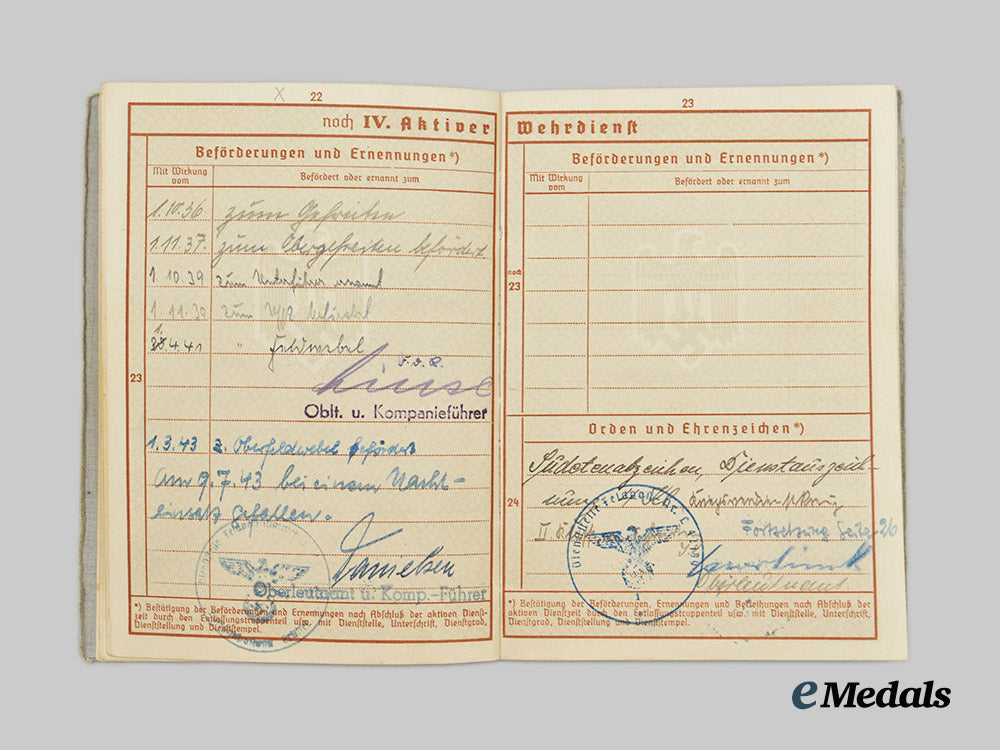 X 22
noch IV. Aktiver
Beförderungen und Ernennungen*)
Mit Wirkung vom
Befördert oder ernannt zum
1.10.36 zum Gefreiten
1.11.37. zum Obergefreiten befördert
1.10.39 zum Unterführer ernannt
1.11.39 zum befördert
1.4.41 " Feldwebel
F.d.R.
23
Oblt. u. Kompanieführer
1.3.43 z. Oberfeldwebel befördert
Am 9.7.43 bei einem Nacht-
einsatz gefallen.
Oberleutnant u. Komp.-Führer
*) Bestätigung der Beförderungen und Ernennungen nach Abschluß der aktiven Dienst-
zeit durch den Entlassungstruppenteil usw. mit Dienststelle, Unterschrift, Dienstgrad,
Dienststellung und Dienststempel.
23
Wehrdienst
Beförderungen und Ernennungen*)
Mit Wirkung vom
Befördert oder ernannt zum
noch
23
Orden und Ehrenzeichen*)
Sudetenabzeichen, Dienstauszeich-
nung
24
II Fortsetzung Seite 26
Dienststelle Feldpost Nr. L
Oberleutnant
*) Bestätigung der Beförderungen, Ernennungen und Verleihungen nach Abschluß der
aktiven Dienstzeit durch den Entlassungstruppenteil usw. mit Dienststelle, Unterschrift,
Dienstgrad, Dienststellung und Dienststempel.
eMedals